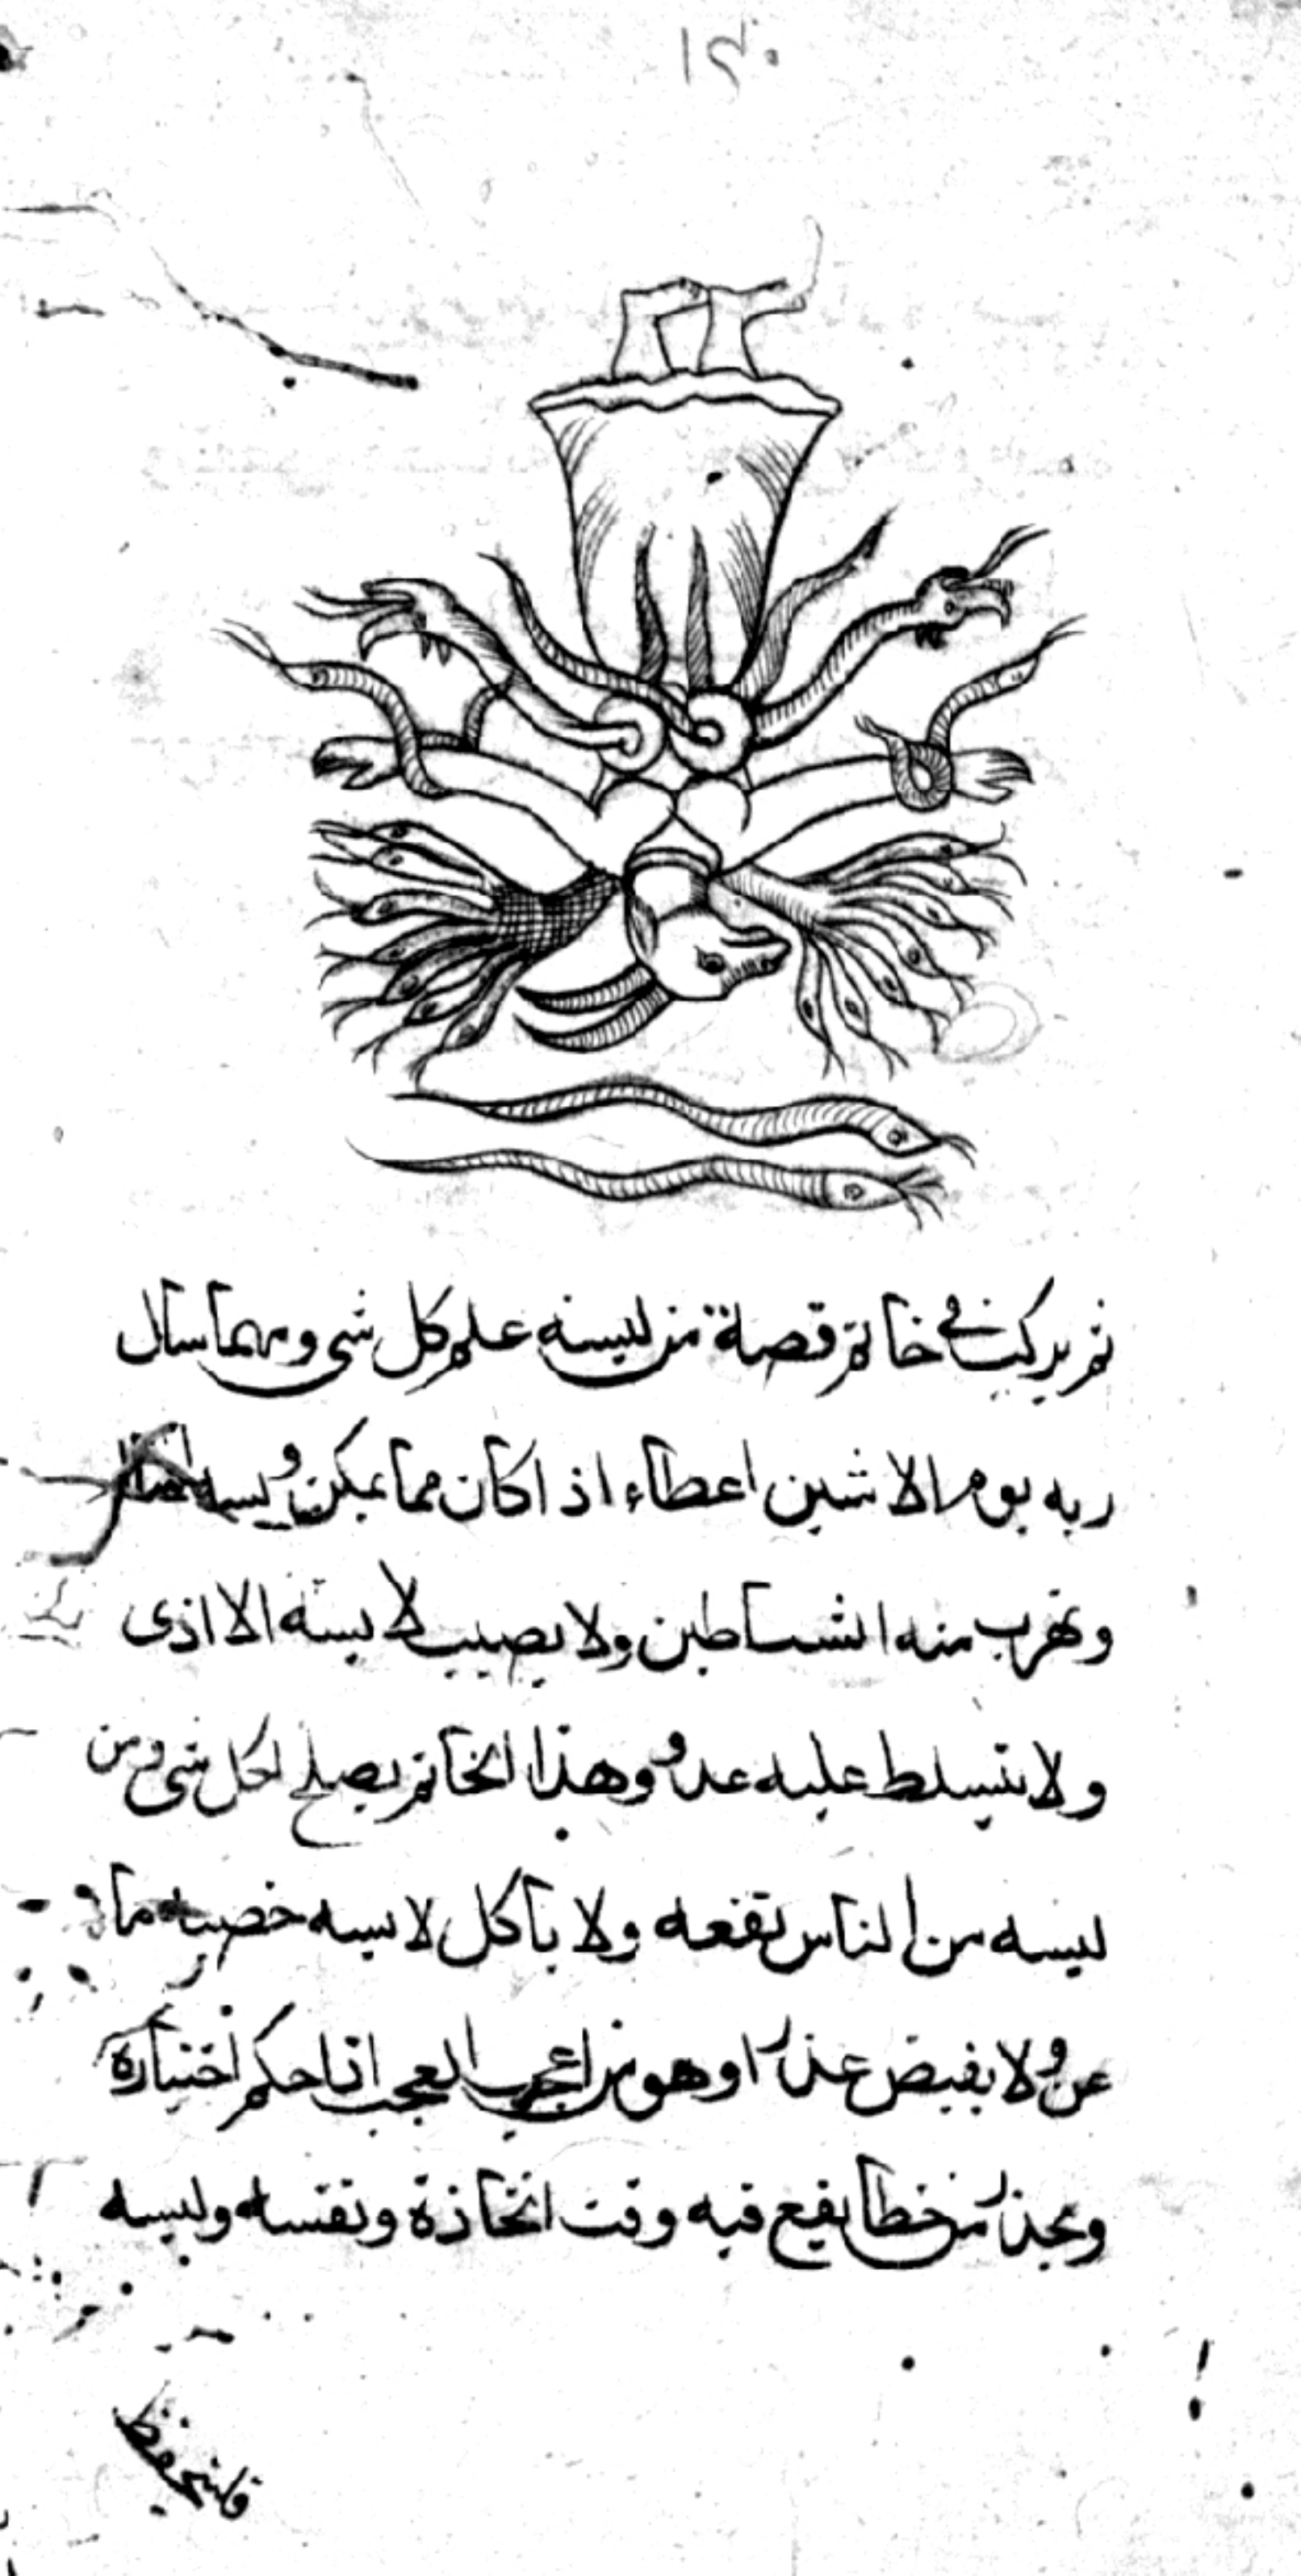 ١٩٠
ثم يركب في خاتم قصلة من لبسه علم كل شى ومهما سأل
ربه يوم الاثنين اعطاء اذا كان مما يمكن
وتهرب منه الشياطين ولا يصيب لابسه الا اذى
ولا يتسلط عليه عدو وهذا الخاتم يصلح لكل شى ومن
لبسه من الناس نفعه ولا ياكل لابسه خصيه ما
عن ولا يفيض عذرا وهو من اعجب العجب اذا حكم اختياره
ويحذر من خطا يقع فيه وقت اتخاذه ونقشه ولبسه
فليتحفظ